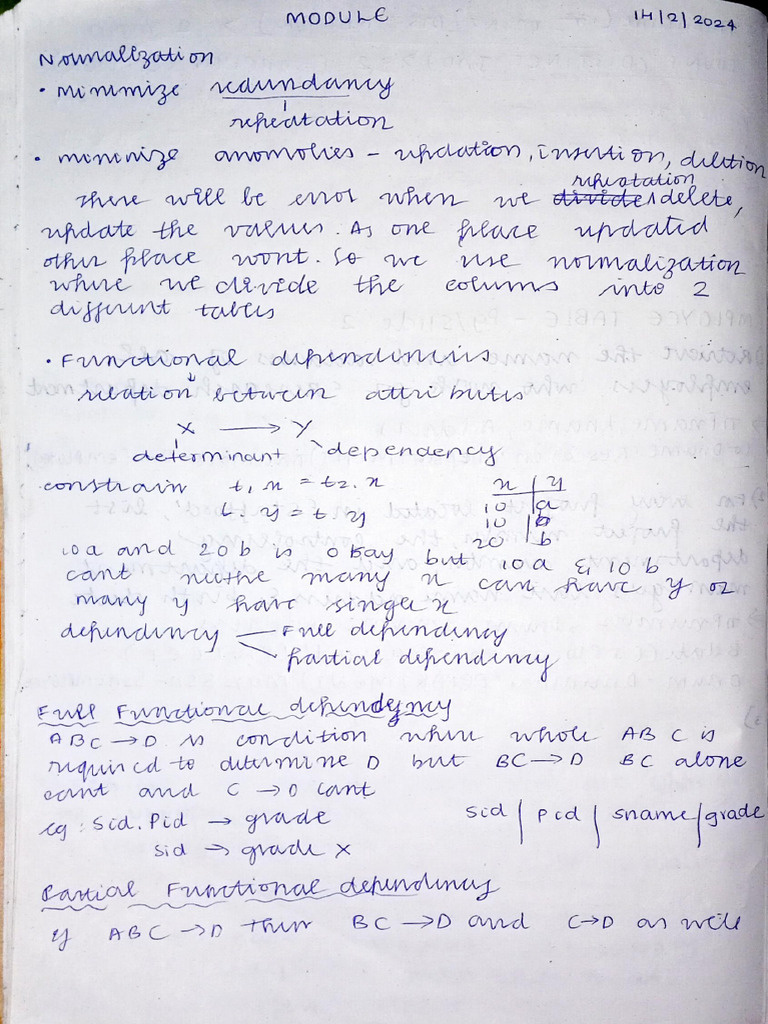 MODULE
14/2/2024
Normalization
• minimize redundancy
repeatation
• minimize anomolies - updation, insertion, diletion
repeatation
There will be error when we divide delete,
update the values. As one place updated
other place wont. So we use normalization
where we divide the columns into 2
different tables
• Functional dependencies
relation between attributes
X → Y
determinant dependency
constrain t1 x = t2.x
t1 y = t y
x | y
10 | a
10 | b
20 | b
10a and 20b is okay but 10a & 10b
cant many x can have y or
many y have single x
dependency Full dependency
partial dependency
Full Functional dependency
ABC → D is condition where whole ABC is
required to determine D but BC → D BC alone
cant and C → D cant
eg: Sid. Pid → grade
sid → grade X
sid | Pid | sname | grade
Partial Functional dependency
if ABC → D then BC → D and C → D as well